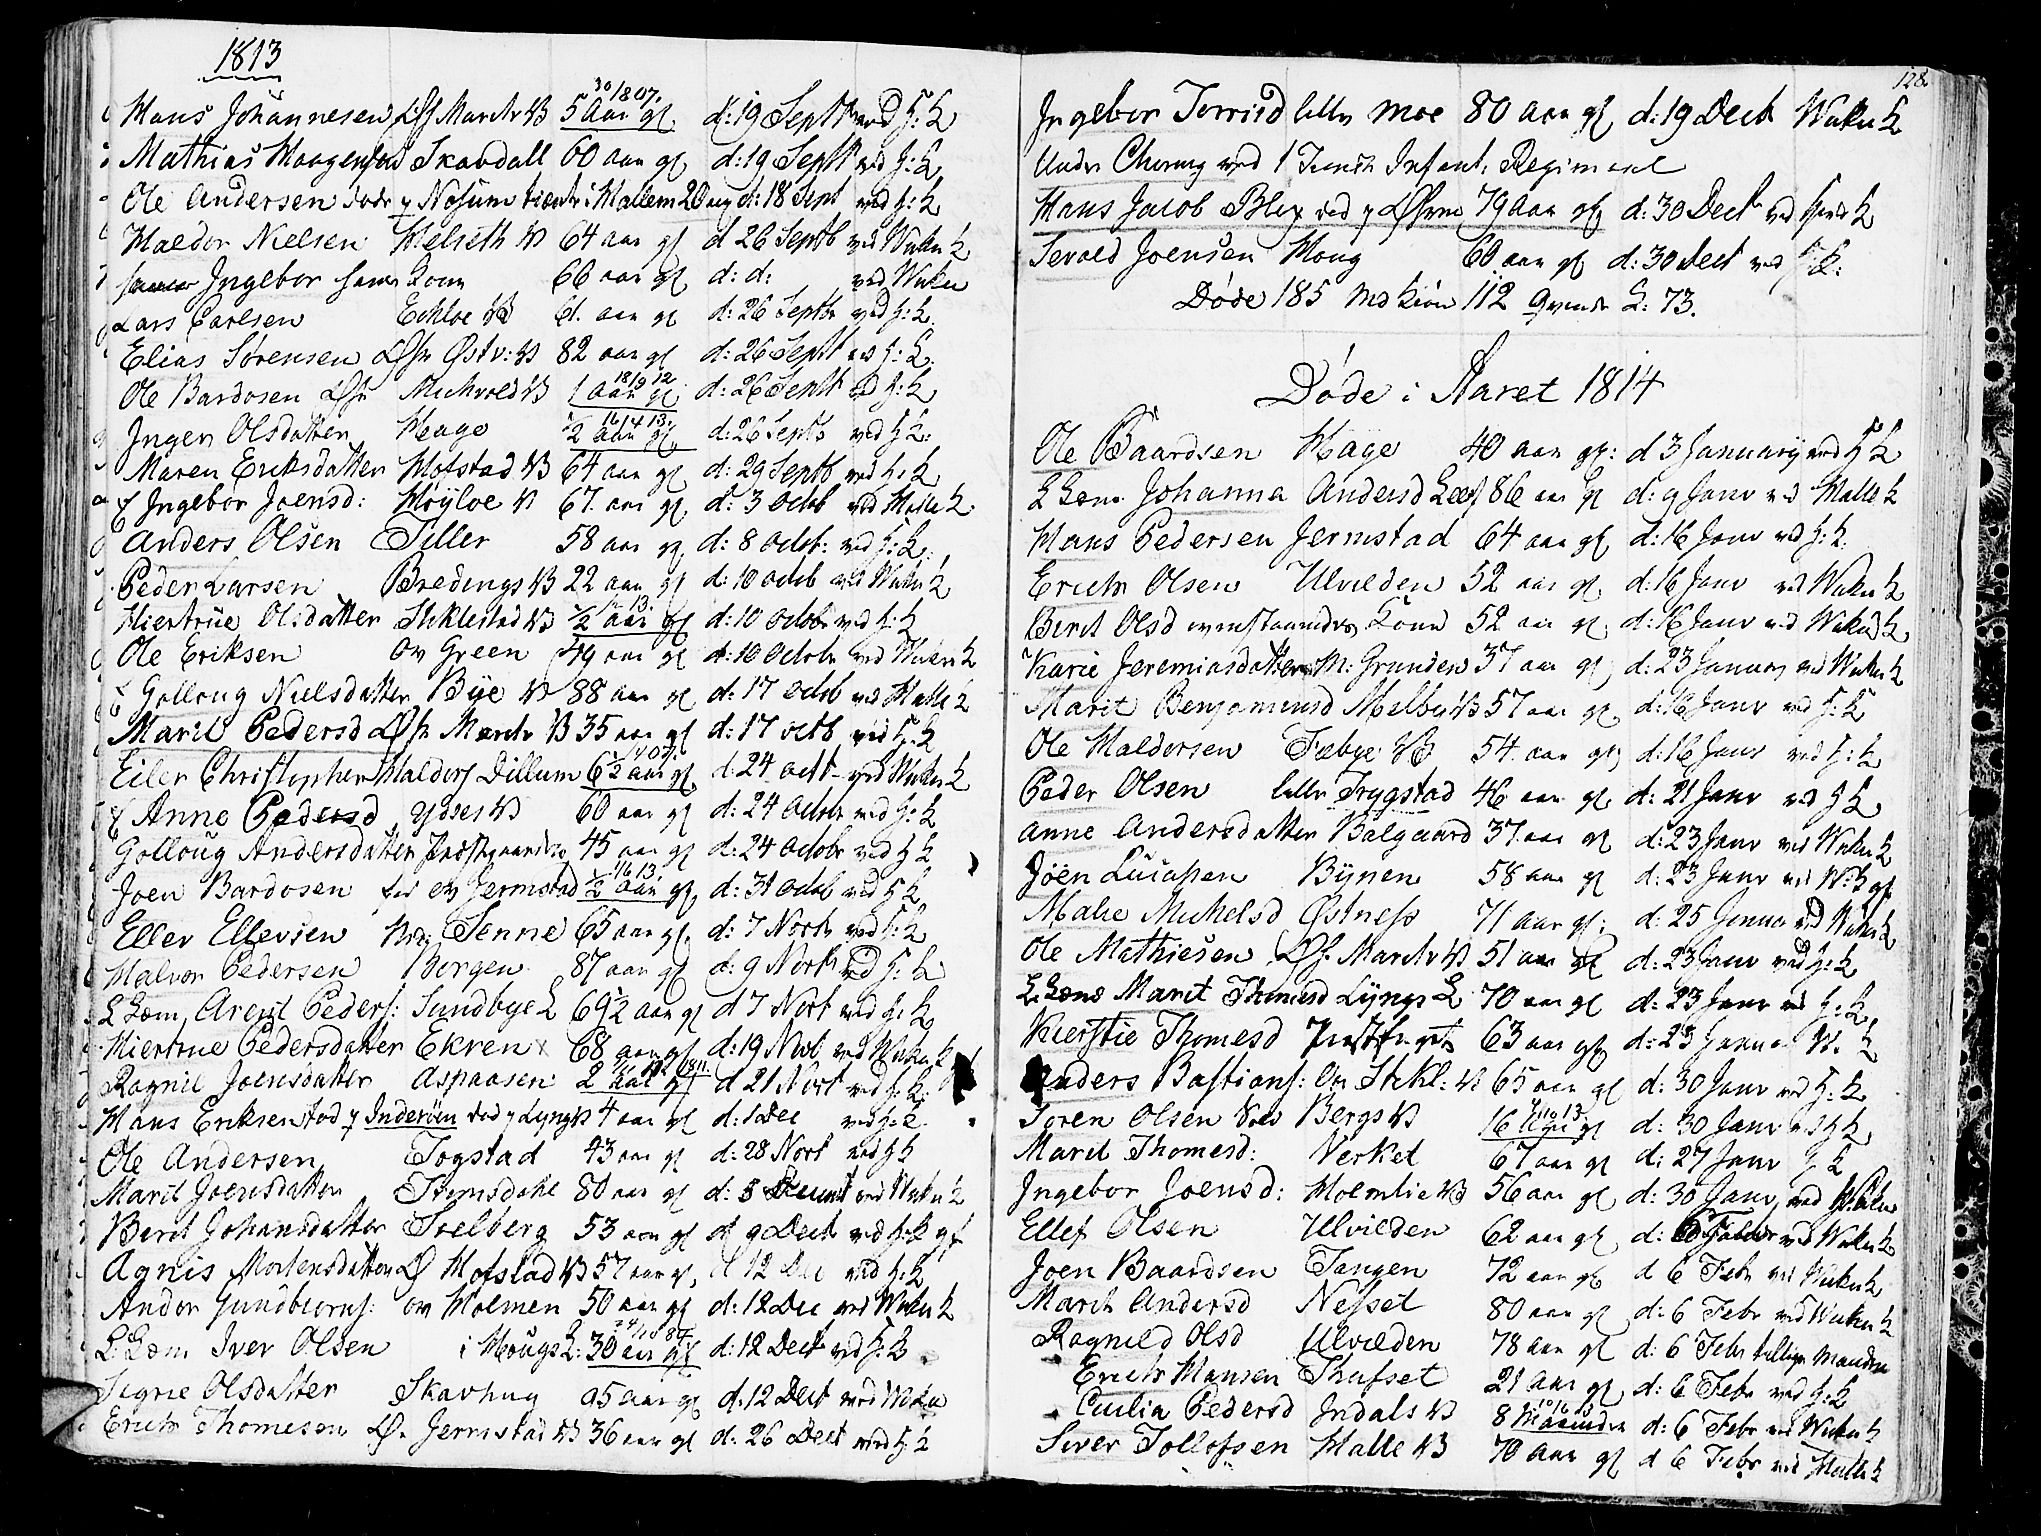 1813
Hans Johannesen Øf March VB 5 aar gl. d: 19 Sept ved H: K
30/8 07.
Mathias Haagensen Skavdall 60 aar gl d: 19 Sept ved H: K
Ole Andersen Nosum i Hallem 20 aar d: 18 Sept ved H: K
Haldor Nielsen Helseth VB 64 aar gl d 26 Septb ved Wuku K
Ingebor hans Kone 66 aar gl d: d: ved Wuku
Lars Carlsen Ekloe VB 61. aar gl d: 26 Septbr ved H: K
Elias Sørensen Øfr Østv: VB 82 aar gl d: 26 Sept ved H: K.
Ole Bardosen Øfr Mickvold VB 1 aar gl d: 26 Sept ved H: K
18/9 12
Ingen Olsdatter Hage 1/2 aar gl d: 26 Septb ved H K:
16/4 13.
Maren Eriksdatter Hofstad VB 64 aar gl d: 29 Septb ved H: K
Ingebor Joensd: Høyloe VB 67. aar gl. d: 3 Octob ved Halle K
Anders Olsen Tiller 58 aar gl d: 8 Octob: ved H: K:
Peder Larsen Bredings VB 22 aar gl d: 10 Octob ved Wuku K
Hiertrue Olsdatter Stiklestad VB 1/2 aar gl d: 10 Octobr ved H: K
Ole Eriksen ov Green 49 aar gl d: 10 Octobr ved Wuku K
Golloug Nielsdatter Bye VB 88 aar gl d: 17 Octob ved Halle K
Marit Pedersd Øfr March VB 35 aar gl d: 17 Octb ved H: K
Eiler Christopher Haldors Dillum 6 1/2 aar gl d: 24 Octb ved Wuku K
Anne Pedersd Ydses VB 60 aar gl d: 24 Octobr ved H: K
Golloug Andersdatter Præstgaarden 45 aar gl d: 24 Octobr ved H K
Joen Bardosen ov Jermstad 1/2 aar gl d: 31 Octob ved H K
Eller Ellevsen Nr: Senne 65 aar gl. d: 7 Novb ved H: K
Halvor Pedersen Borgen 87 aar gl d: 9 Novb ved H: K
L Lem Arent Peders: Sundbye L 69 1/2 aar gl d 7 Novb ved H: K
Hiertrue Pedersdatter Ekren 68 aar gl d: 19 Novb ved Wuku K
Ragnil Joensdatter Aspaasen 2 aar gl d 21 Novb ved H: K
Hans Eriksen fød p Inderøen død p Lyng VB 4 aar gl d: 1 Dec ved H: K
Ole Andersen Togstad 43 aar gl d: 28 Novb ved H K
Marit Joensdatter Stensdahl 80 aar gl d: 5 Decemb ved Wuku K
Berit Johansdatter Solberg 53 aar gl d 9 Decb ved H: K gl
Agnis Mortensdatter Ø Hofstad VB 57 aar gl. d 12 Dec ved H: K
Andor Gundbiorns: ov Holmen 50 aar gl d: 12 Dec ved Wuku K
L: Lem Iver Olsen i Hougs L: 30 aar gl d: 12 Decb ved H: K
Sigrie Olsdatter Skavhug 95 aar gl d: 12 Decb ved Wuku
Erich Thomesen Ø. Jermstad VB 36 aar gl d: 26 Decb ved H: K
128.
Ingebor Torrisd lille Moe 80 aar gl d: 19 Decb Wuku K
Under ved 1 Infant: Regiment
Hans Jacob Blix 79 aar gl. d: 30 Decb ved K
Sevald Joensen Houg 60 aar gl d: 30 Decb ved H: K:
Døde 185 Md Kiøn 112 Qvinde K: 73.
Døde i Aaret 1814
Ole Baardsen Hage 40 aar gl: d 3 January ved H K
L Lem. Johanna Andersd 86 aar gl d: 9 Janv ved Halle K
Hans Pedersen Jermstad 64 aar gl d: 16 Janv ved H: K:
Erich Olsen Ulvilden 52 aar gl. d: 16 Janv ved Wuku K
Berit Olsd ovenstaaendes Kone 52 aar gl. d: 16 Janv ved Wuku K
Karie Jeremiasdatter M: Grunden 37 aar gl d: 23 Januar ved Wuku K
Marit Benjaminsd Melby VB 57 aar gl. d: 16 Janv ved H: K
Ole Haldorsen Fæbye VB 54. aar gl d: 16 Janv ved H: K
Peder Olsen lille Trygstad 46 aar gl. d: 21 Janv ved H K
Anne Andersdatter Balgaard 37. aar gl d: 23 Janv ved Wuku K
Joen Bynen 58 aar gl d: 23 Janv ved W: K gl
Malie Mickelsd Østness 71 aar gl: d: 25 Janua ved Wuku K
Ole Mathiesen Øf. March VB 51 aar gl d: 23 Janv ved H: K
L: Lems Marit Thomesd Lyngs L 70 aar gl d: 23 Janv ved H: K
Kierstie Thomesd 63 aar gl d: 23 Janua W. K
Anders Bastians: Stikl: VB 65 aar gl d: 30 Janv ved H: K
Søren Olsen Bergs VB 16 gl d: 30 Janv ved H K
Marit Thomesd: Verket 67 aar gl d: 27 Janv H K
Ingebor Joensd: Holmlie VB 56 aar gl d: 30 Janv ved Wuku
Ellef Olsen Ulvilden 62 aar gl d: 6 Febr ved Wuku K
Joen Baardsen Tangen 72 aar gl d 6 Febr ved Wuku K
Marit Andersd Nesset 80 aar gl d: 6 Febr ved Wuku K
Ragnild Olsd Ulvilden 78 aar gl d: 6 Febr
Erich Hansen 21 aar gl d: 6 Febr ved H: K
Cicilia Pedersd Indals VB 8 Maaneder d: 6 Febr ved Wuku K
Siver Tollofsen Halle VB 70 aar gl d 6 Febr ved Halle K